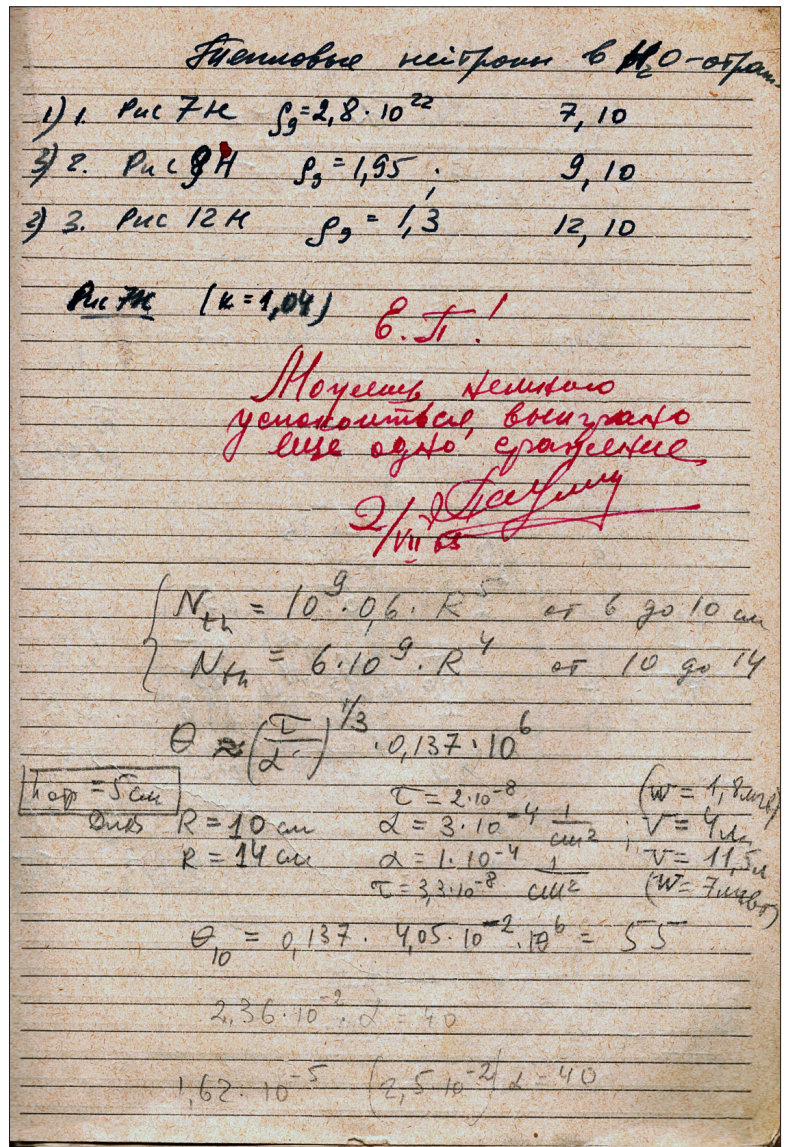 Тепловые нейтроны в H₂O-отраж.
1) 1. Рис 7Н ρ₉=2,8·10²² 7, 10
3) 2. Рис 9Н ρ₉=1,95 ; 9, 10
2) 3. Рис 12Н ρ₉=1,3 12, 10
Рис 7Н (к=1,04)
Е.П!
Можешь немного
успокоиться, выиграно
еще одно сражение
2/VII 65
N_th = 10⁹·0,6·R⁵ от 6 до 10 см
N_th = 6·10⁹·R⁴ от 10 до 14
θ ≈ (τ/α)^1/3 ·0,137·10⁶
h отр = 5 см τ = 2·10⁻⁸ (W = 1,8мгвт)
Для R = 10 см α = 3·10⁻⁴ 1/см² ; V = 4л
R = 14 см α = 1·10⁻⁴ 1/см² V = 11,5л
τ = 3,3·10⁻⁸ (W = 7мгвт)
θ₁₀ = 0,137 · 4,05·10⁻² ·10⁶ = 55
2,36·10⁻² · α = 40
1,62·10⁻⁵ (2,5·10⁻²) α = 40